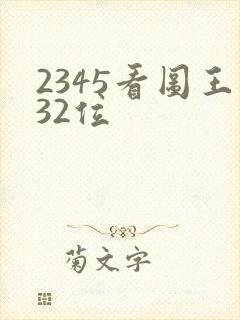 2345看图王
32位
菊文字